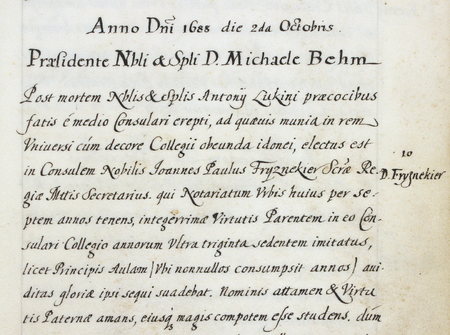 Anno Dnĩ 1688 die 2da Octobris.
Præsidente Nbli & Spli D. Michaele Behm
Post mortem Nblis & Splis Antonij Lukini præcocibus
fatis é medio Consulari erepti, ad quævis munia in rem
Vniversi cúm decore Collegij obeunda idonei, electus est
in Consulem Nobilis Ioannes Paulus Fryznekier Scræ Re-
giæ Mttis Secretarius. qui Notariatum Vrbis huius per se-
ptem annos tenens, integerrimæ Virtutis Parentem in eo Con-
sulari Collegio annorum Vltra triginta sedentem imitatus,
licet Principis Aulam (Vbi nonnullos consumpsit annos) avi-
ditas gloriæ ipsi sequi suadebat. Nominis attamen & Virtu
tis Paternæ amans, eiusq́ magis compotem esse studens, dúm
10
D. Fryznekier